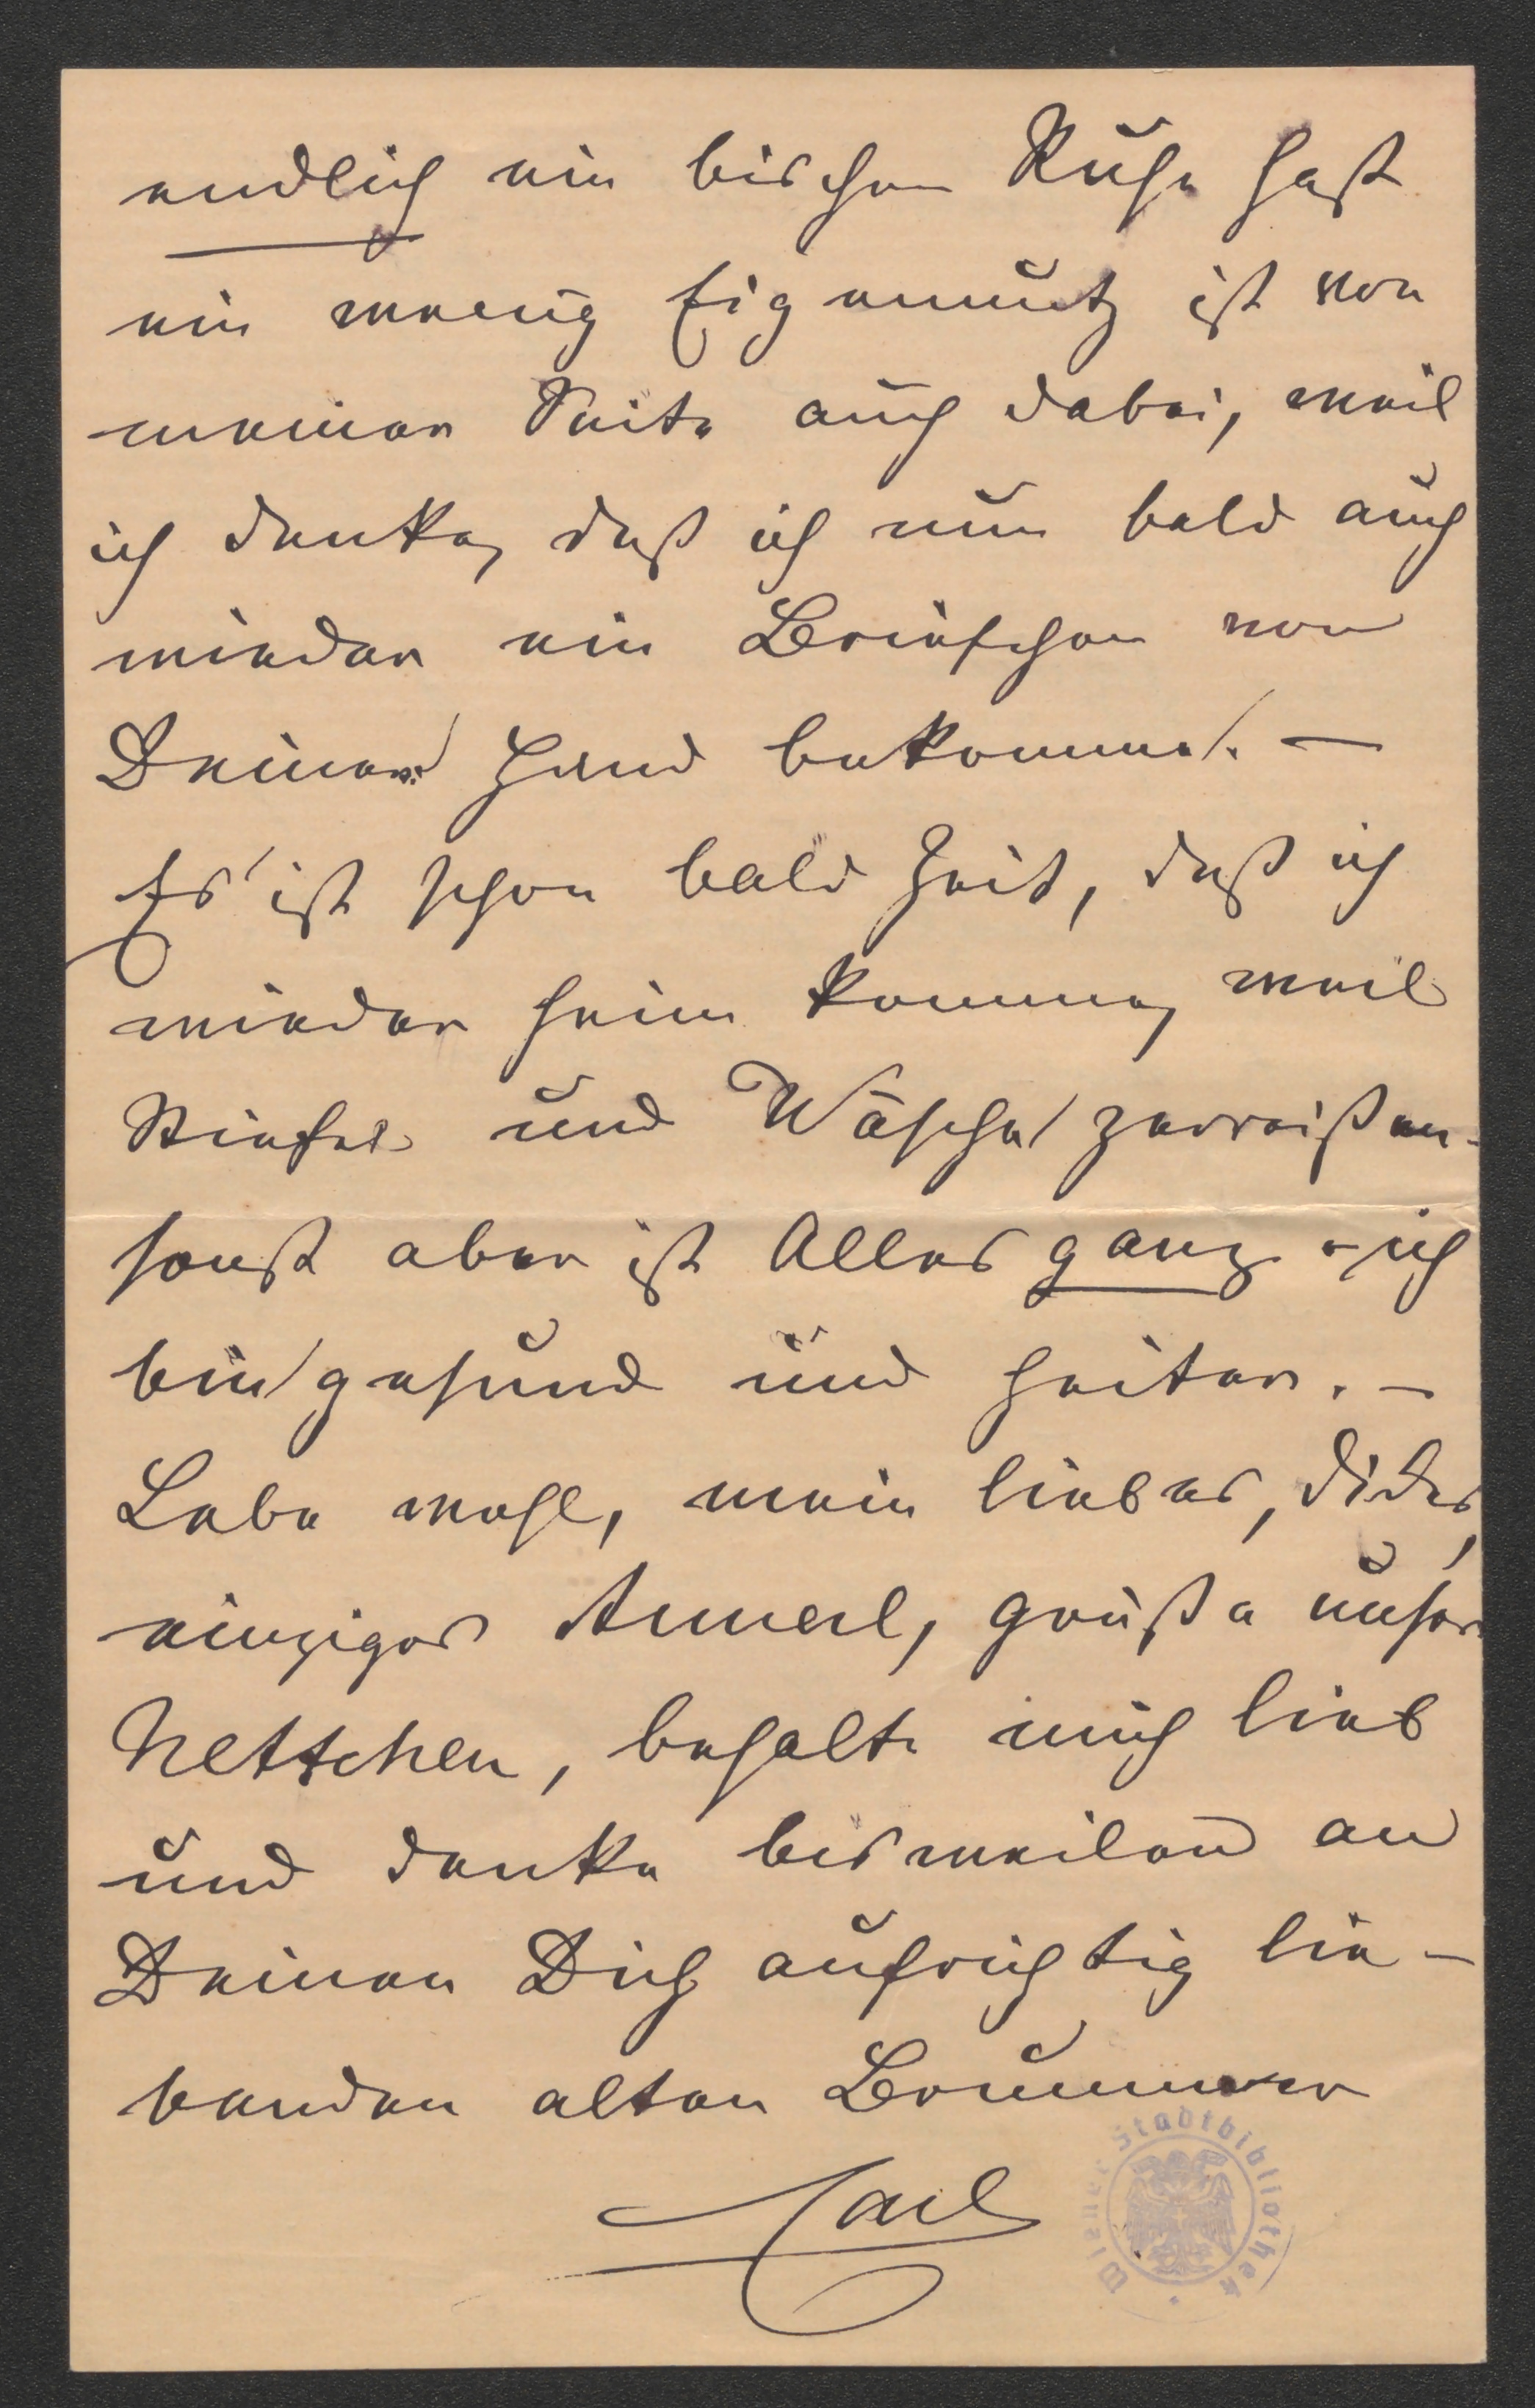 endlich ein bischen Ruhe hast
ein wenig Eigennutz ist von
meiner Seite auch dabei, weil
ich denke, daß ich nun bald auch
wieder ein Briefchen von
Deiner Hand bekomme. —
Es ist schon bald Zeit, daß ich
wieder heim komme, weil
Stiefel und Wäsche zerreißen -
sonst aber ist Alles ganz u ich
bin gesund und heiter. —
Lebe wohl, mein liebes, dickes,
einziges Annerl, grüße unser
Nettchen, behalte mich lieb
und denke bisweilen an
Deinen Dich aufrichtig lie-
benden alten Brummer
Carl
Wiener Stadtbibliothek